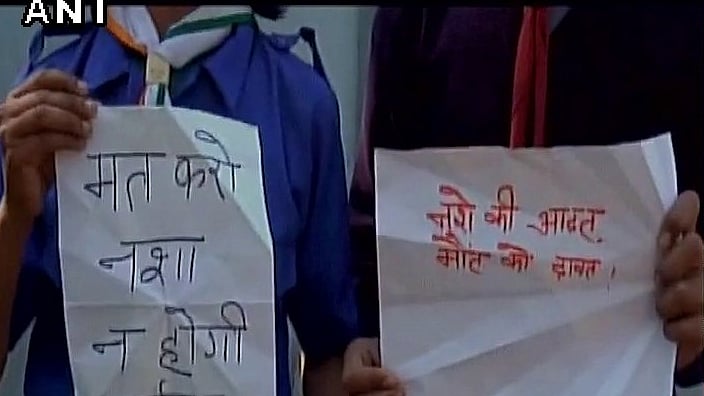 ANI
मत करो
नशा
न होगी
नशे की आदत,
मौत को दावत।